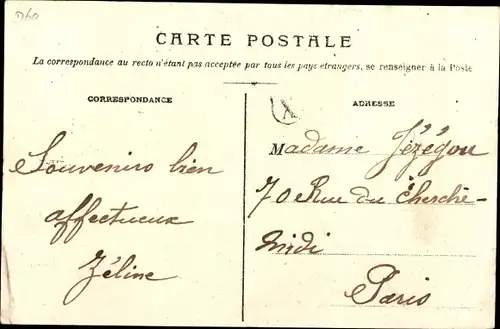 5760
CARTE POSTALE
La correspondance au recto n'étant pas acceptée par tous les pays etrangers, se renseigner à la Poste
CORRESPONDANCE
ADRESSE
X
Souvenirs bien
affectueux
Zéline
Madame Jézégou
70 Rue du Cherche-
Midi
Paris